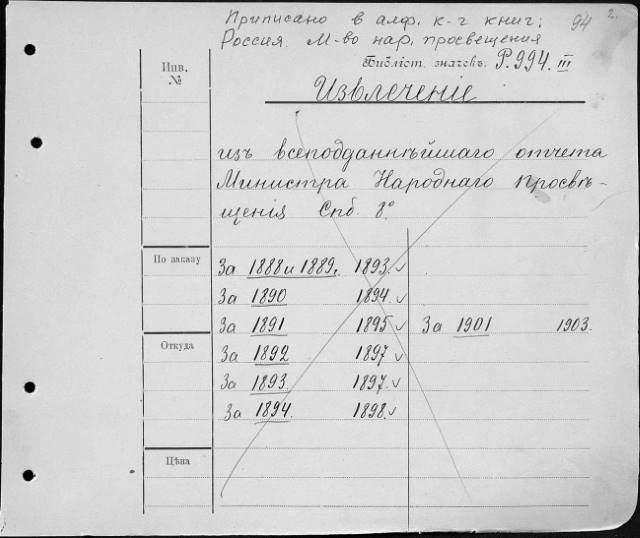 2.
94
Приписано в алф. к-г книг:
Россия. М-во нар. просвещения
Библіот. значекъ. Р.994. III
Инв.
№
Извлеченіе
изъ всеподданнѣйшаго отчета
Министра Народнаго Просвѣ-
щенія Спб. 8º
По заказу
За 1888 и 1889. 1893. ✓
За 1890 1894. ✓
За 1891 1895 ✓ За 1901 1903.
Откуда
За 1892 1897 ✓
За 1893. 1897. ✓
За 1894. 1898. ✓
Цѣна